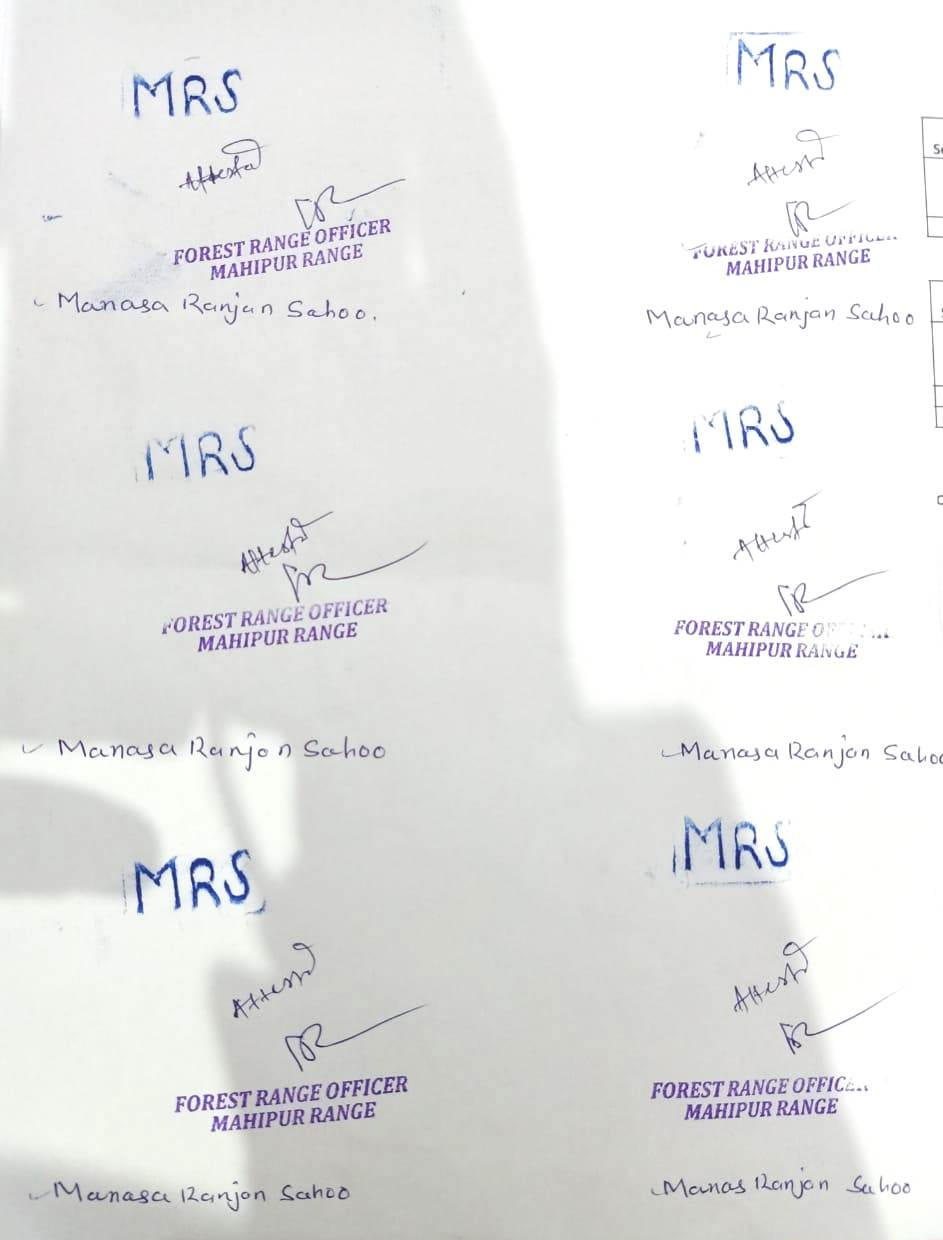 MRS
Attested
FOREST RANGE OFFICER
MAHIPUR RANGE
Manasa Ranjan Sahoo.
MRS
Attested
FOREST RANGE OFFICER
MAHIPUR RANGE
Manasa Ranjan Sahoo
MRS
Attested
FOREST RANGE OFFICER
MAHIPUR RANGE
Manasa Ranjan Sahoo
MRS
Attested
FOREST RANGE
MAHIPUR RANGE
Manasa Ranjan Sahoo
MRS
Attested
FOREST RANGE OFFICER
MAHIPUR RANGE
Manasa Ranjan Sahoo
MRS
Attested
FOREST RANGE OFFIC
MAHIPUR RANGE
Manas Ranjan Sahoo